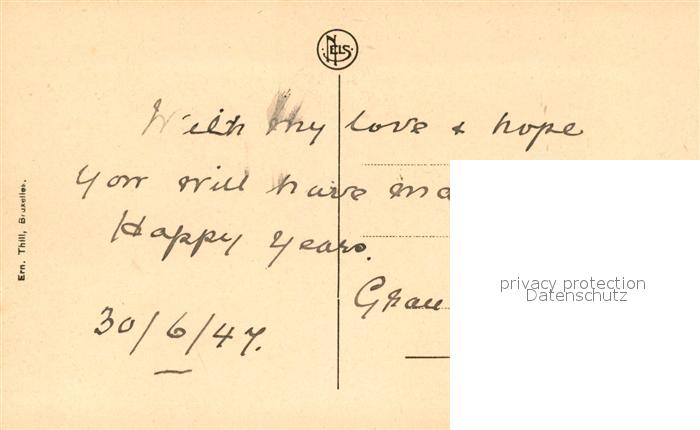 NELS
With my love & hope
you will have ma
Happy years.
Gran
30/6/47.
Ern. Thill, Bruxelles.
privacy protection
Datenschutz